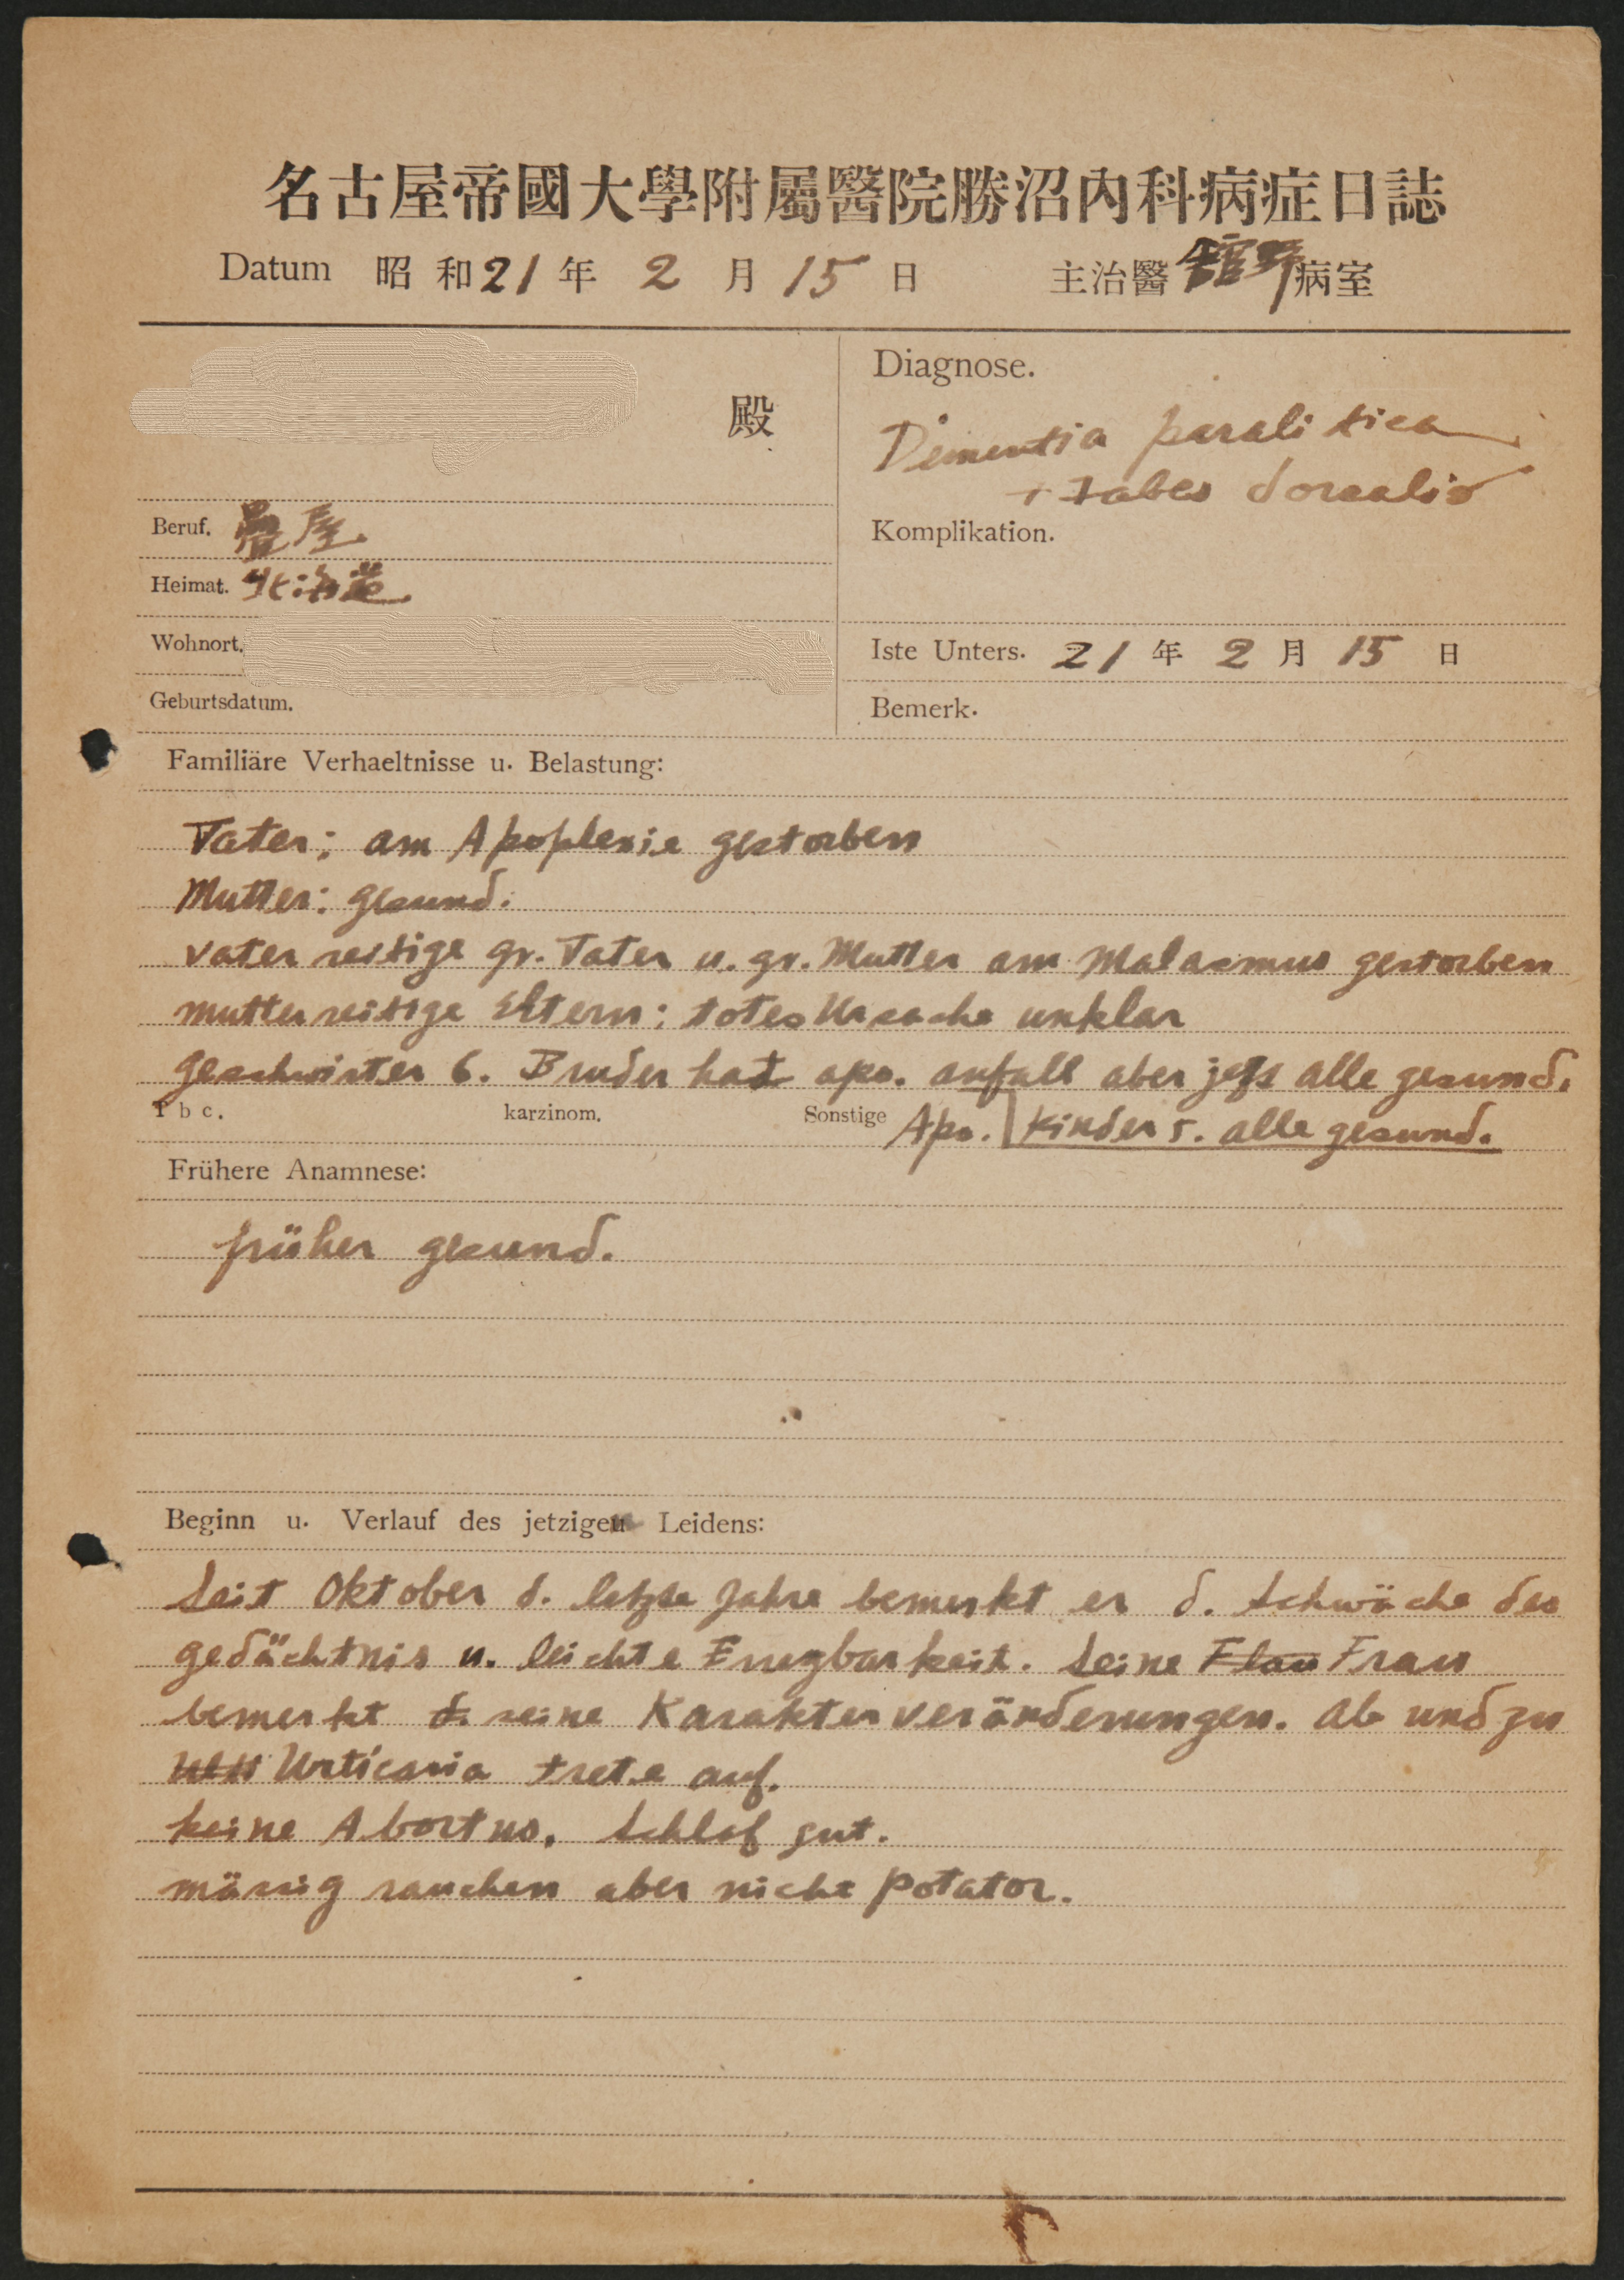 名古屋帝國大學附屬醫院勝沼內科病症日誌
Datum 昭和21年2月15日 主治醫 舘野 病室
殿
Diagnose.
Dementia paralitica
+ Tabes dorsalis
Beruf. 畳屋
Komplikation.
Heimat. 北海道
Wohnort.
Iste Unters. 21年2月15日
Geburtsdatum.
Bemerk.
Familiäre Verhaeltnisse u. Belastung:
Vater: am Apoplexie gestorben
Mutter: gesund.
vater seitige gr. Vater u. gr. Mutter am Malasmus gestorben
mutter seitige Eltern: totes Ursache unklar
Geschwister 6. Bruder hat apo. anfall aber jetz alle gesund.
Tbc. karzinom. Sonstige Apo. Kinder 5. alle gesund.
Frühere Anamnese:
früher gesund.
Beginn u. Verlauf des jetzigen Leidens:
Seit Oktober d. letzte Jahre bemerkt er d. Schwäche des
gedächtnis u. leichte Erregbarkeit. Seine Flau Frau
bemerkt d. seine Karakter veränderungen. Ab und zu
Urticaria trete auf.
keine Abortus. Schlaf gut.
mässig rauchen aber nicht Potator.